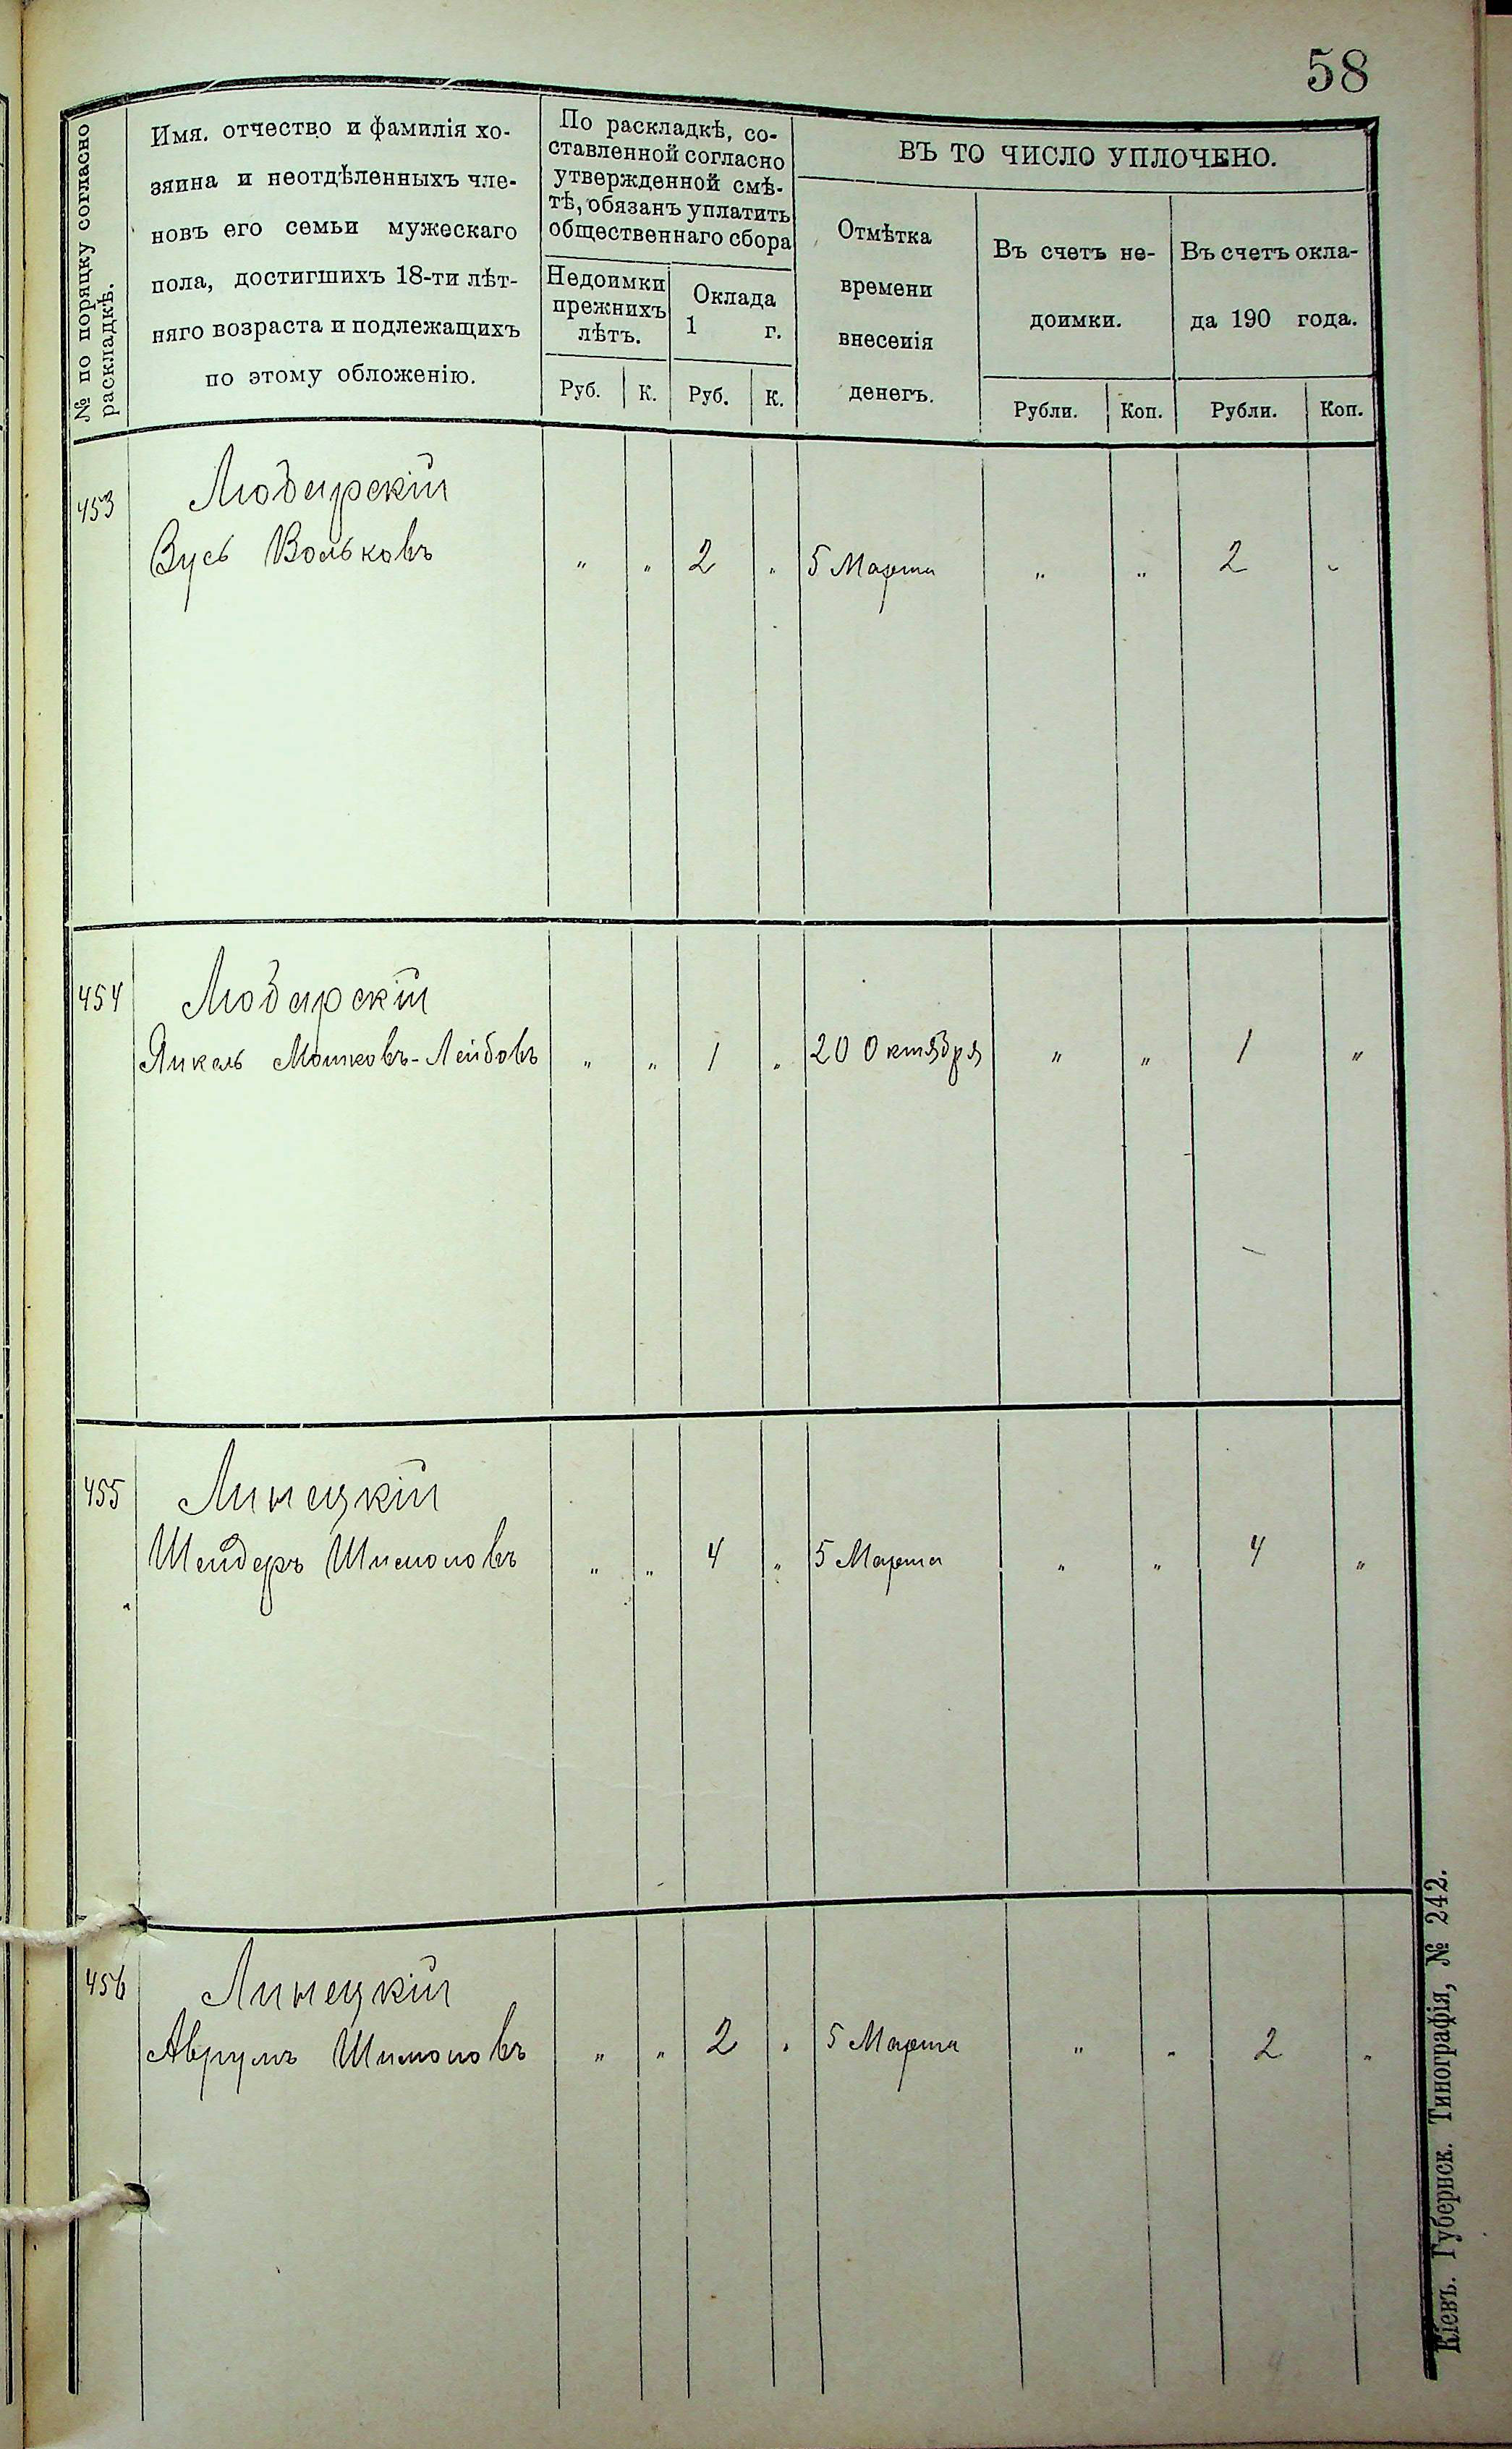 58
№ по порядку согласно
раскладкѣ.
Имя. отчество и фамилія хо-
зяина и неотдѣленныхъ чле-
новъ его семьи мужескаго
пола, достигшихъ 18-ти лѣт-
няго возраста и подлежащихъ
по этому обложенію.
По раскладкѣ, со-
ставленной согласно
утвержденной смѣ-
тѣ, обязанъ уплатить
общественнаго сбора
Недоимки
прежнихъ
лѣтъ.
Оклада
1 г.
Руб. К. Руб. К.
ВЪ ТО ЧИСЛО УПЛОЧЕНО.
Отмѣтка
времени
внесенія
денегъ.
Въ счетъ не-
доимки.
Въ счетъ окла-
да 190 года.
Рубли. Коп. Рубли. Коп.
453 Любарскій
Зусь Вольковъ " " 2 " 5 Марта " " 2 "
454 Любарскій
Янкель Мошковъ-Лейбовъ " " 1 " 20 Октября " " 1 "
455 Линецкій
Шендеръ Шимоновъ " " 4 " 5 Марта " " 4 "
456 Линецкій
Аврумъ Шимоновъ " " 2 " 5 Марта " " 2 "
Кіевъ. Губернск. Типографія, № 242.